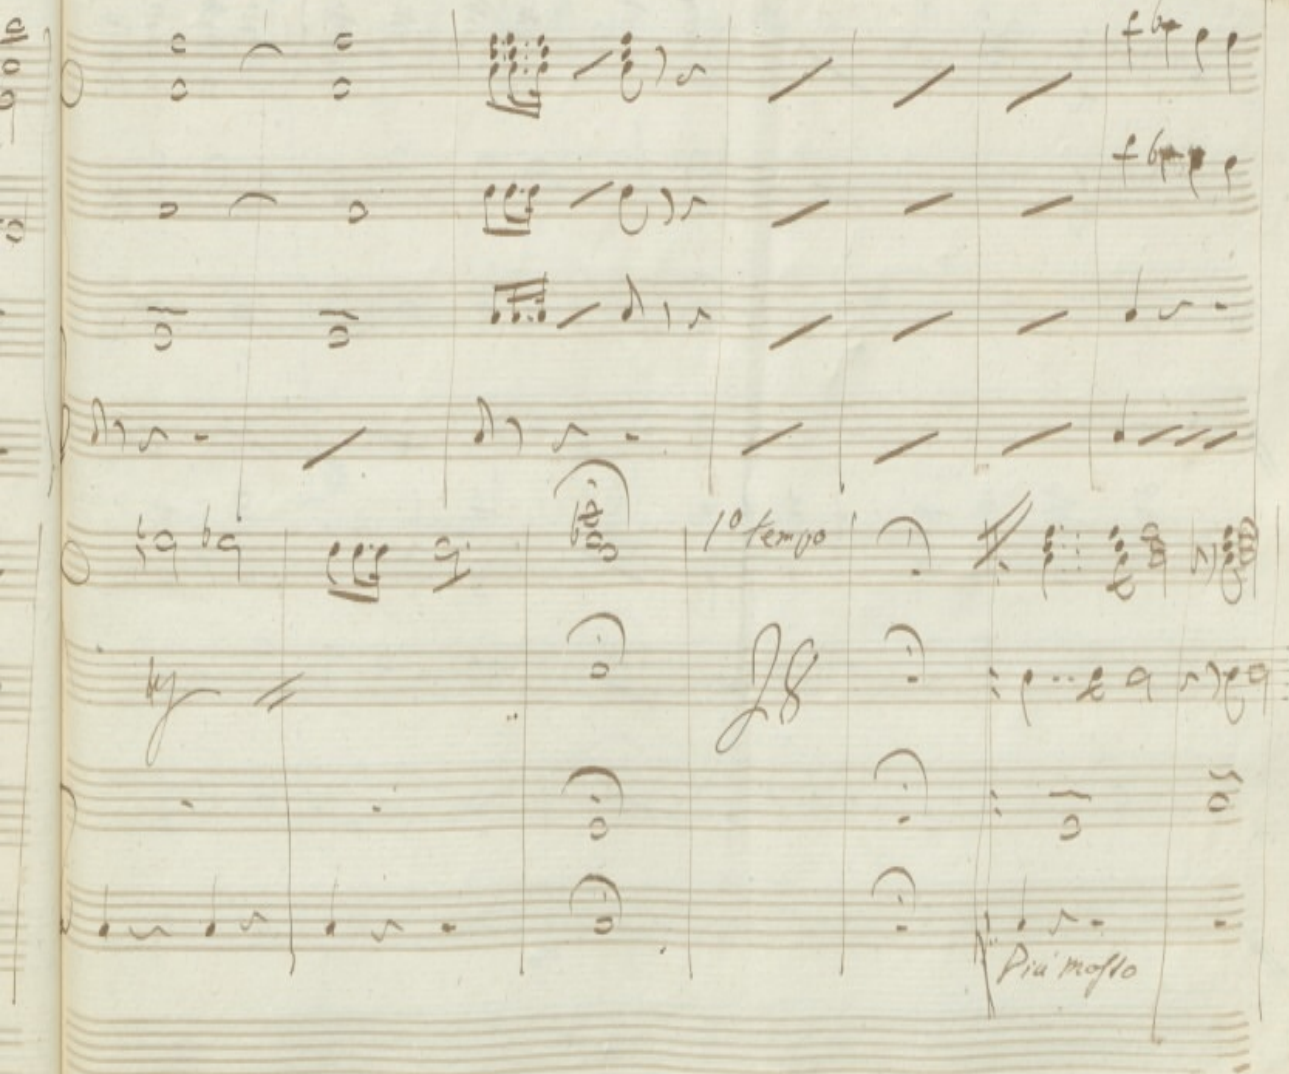 f
f
1º tempo
28
Piu mosso